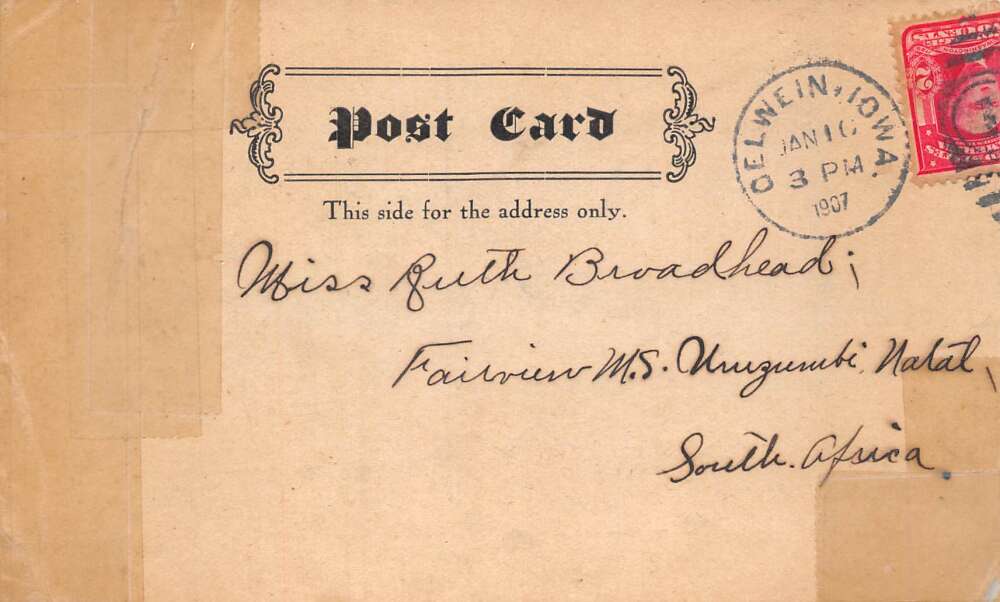 Post Card
This side for the address only.
OELWEIN, IOWA.
JAN 16
3 PM
1907
2
Miss Ruth Broadhead,
Fairview M.S. Umzumbi, Natal,
South. Africa.